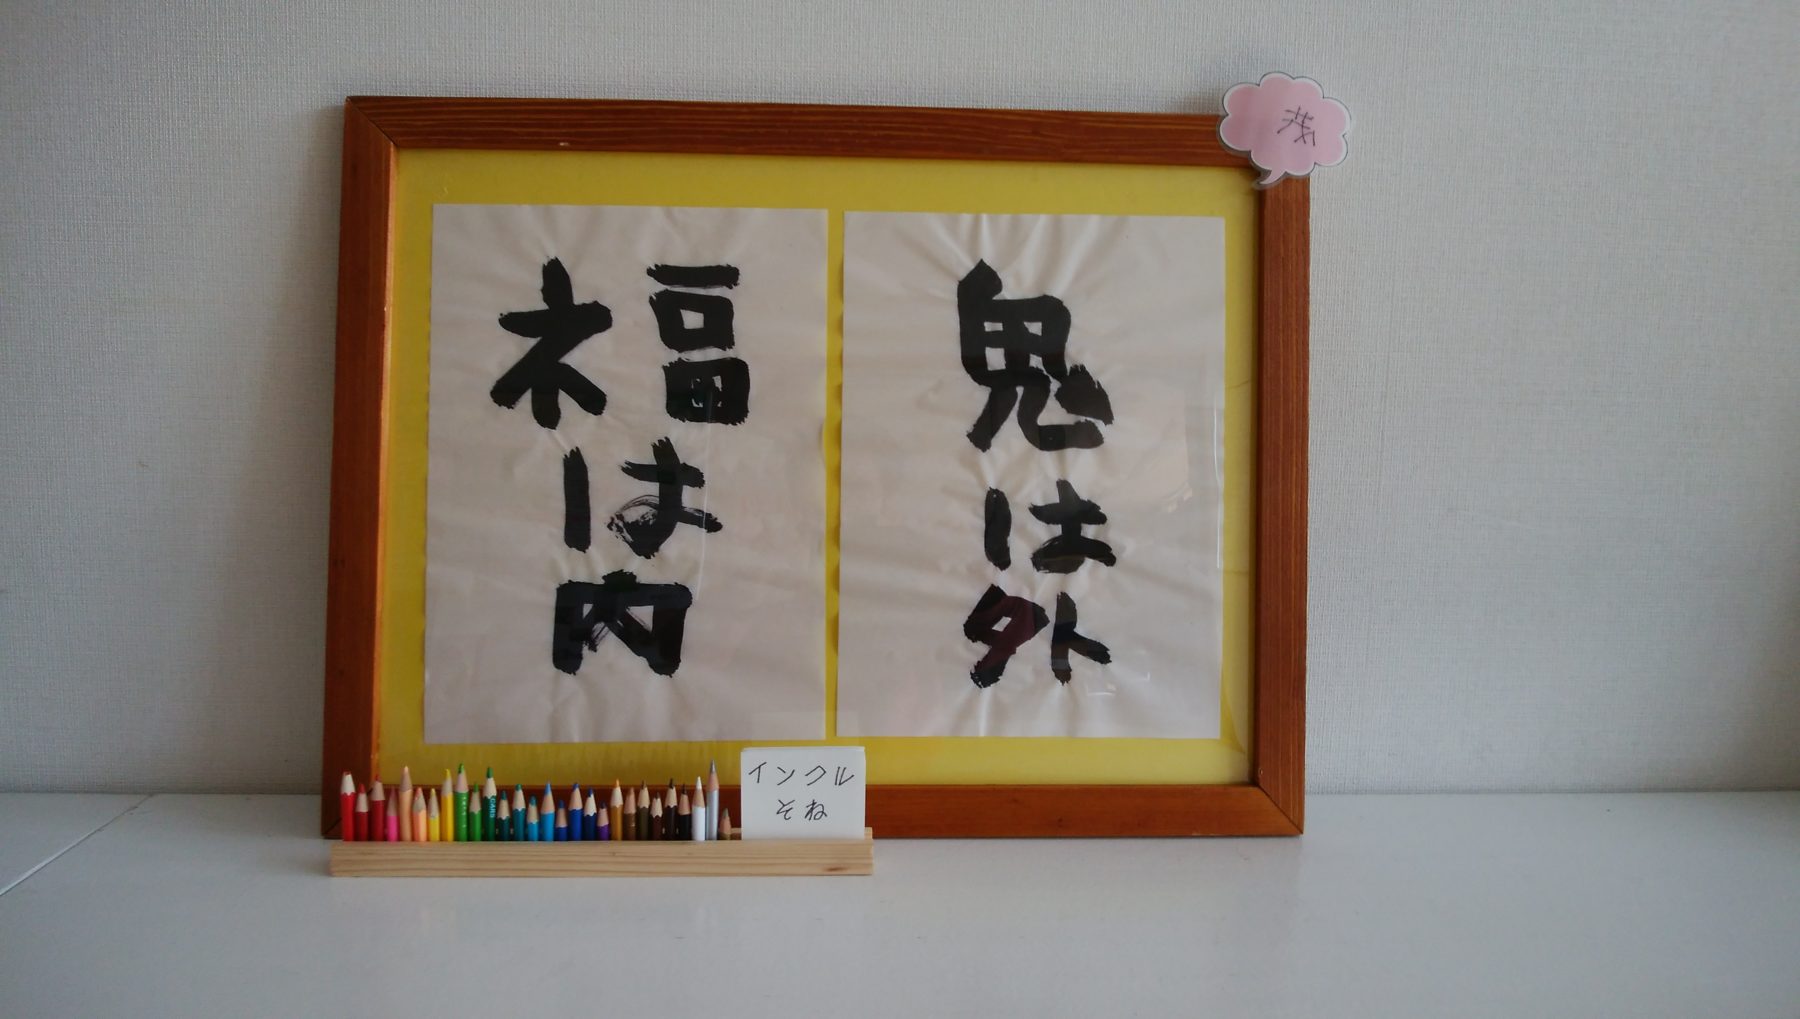 鬼は外
福は内
インクル
そね